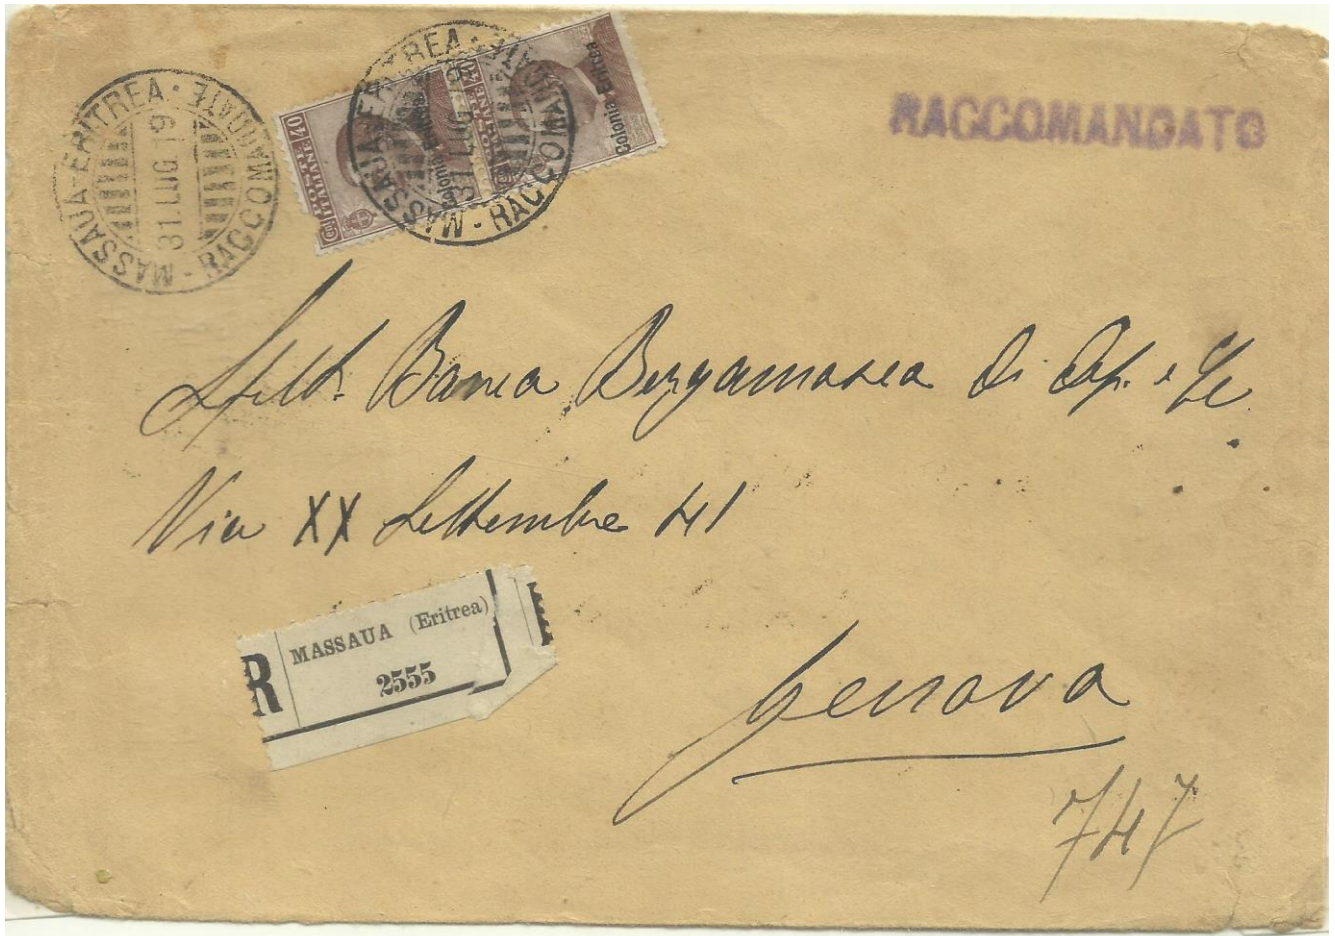 MASSAUA-ERITREA · RACCOMANDATE
31.LUG 19
MASSAUA-ERITREA · RACCOMANDATE
31.LUG 19
40
POSTE ITALIANE
Cmi
Colonia Eritrea
40
POSTE ITALIANE
Colonia Eritrea
RACCOMANDATO
Spett. Banca Bergamasca di Dep. e
Via XX Settembre 41
R
MASSAUA (Eritrea)
2555
Genova
747